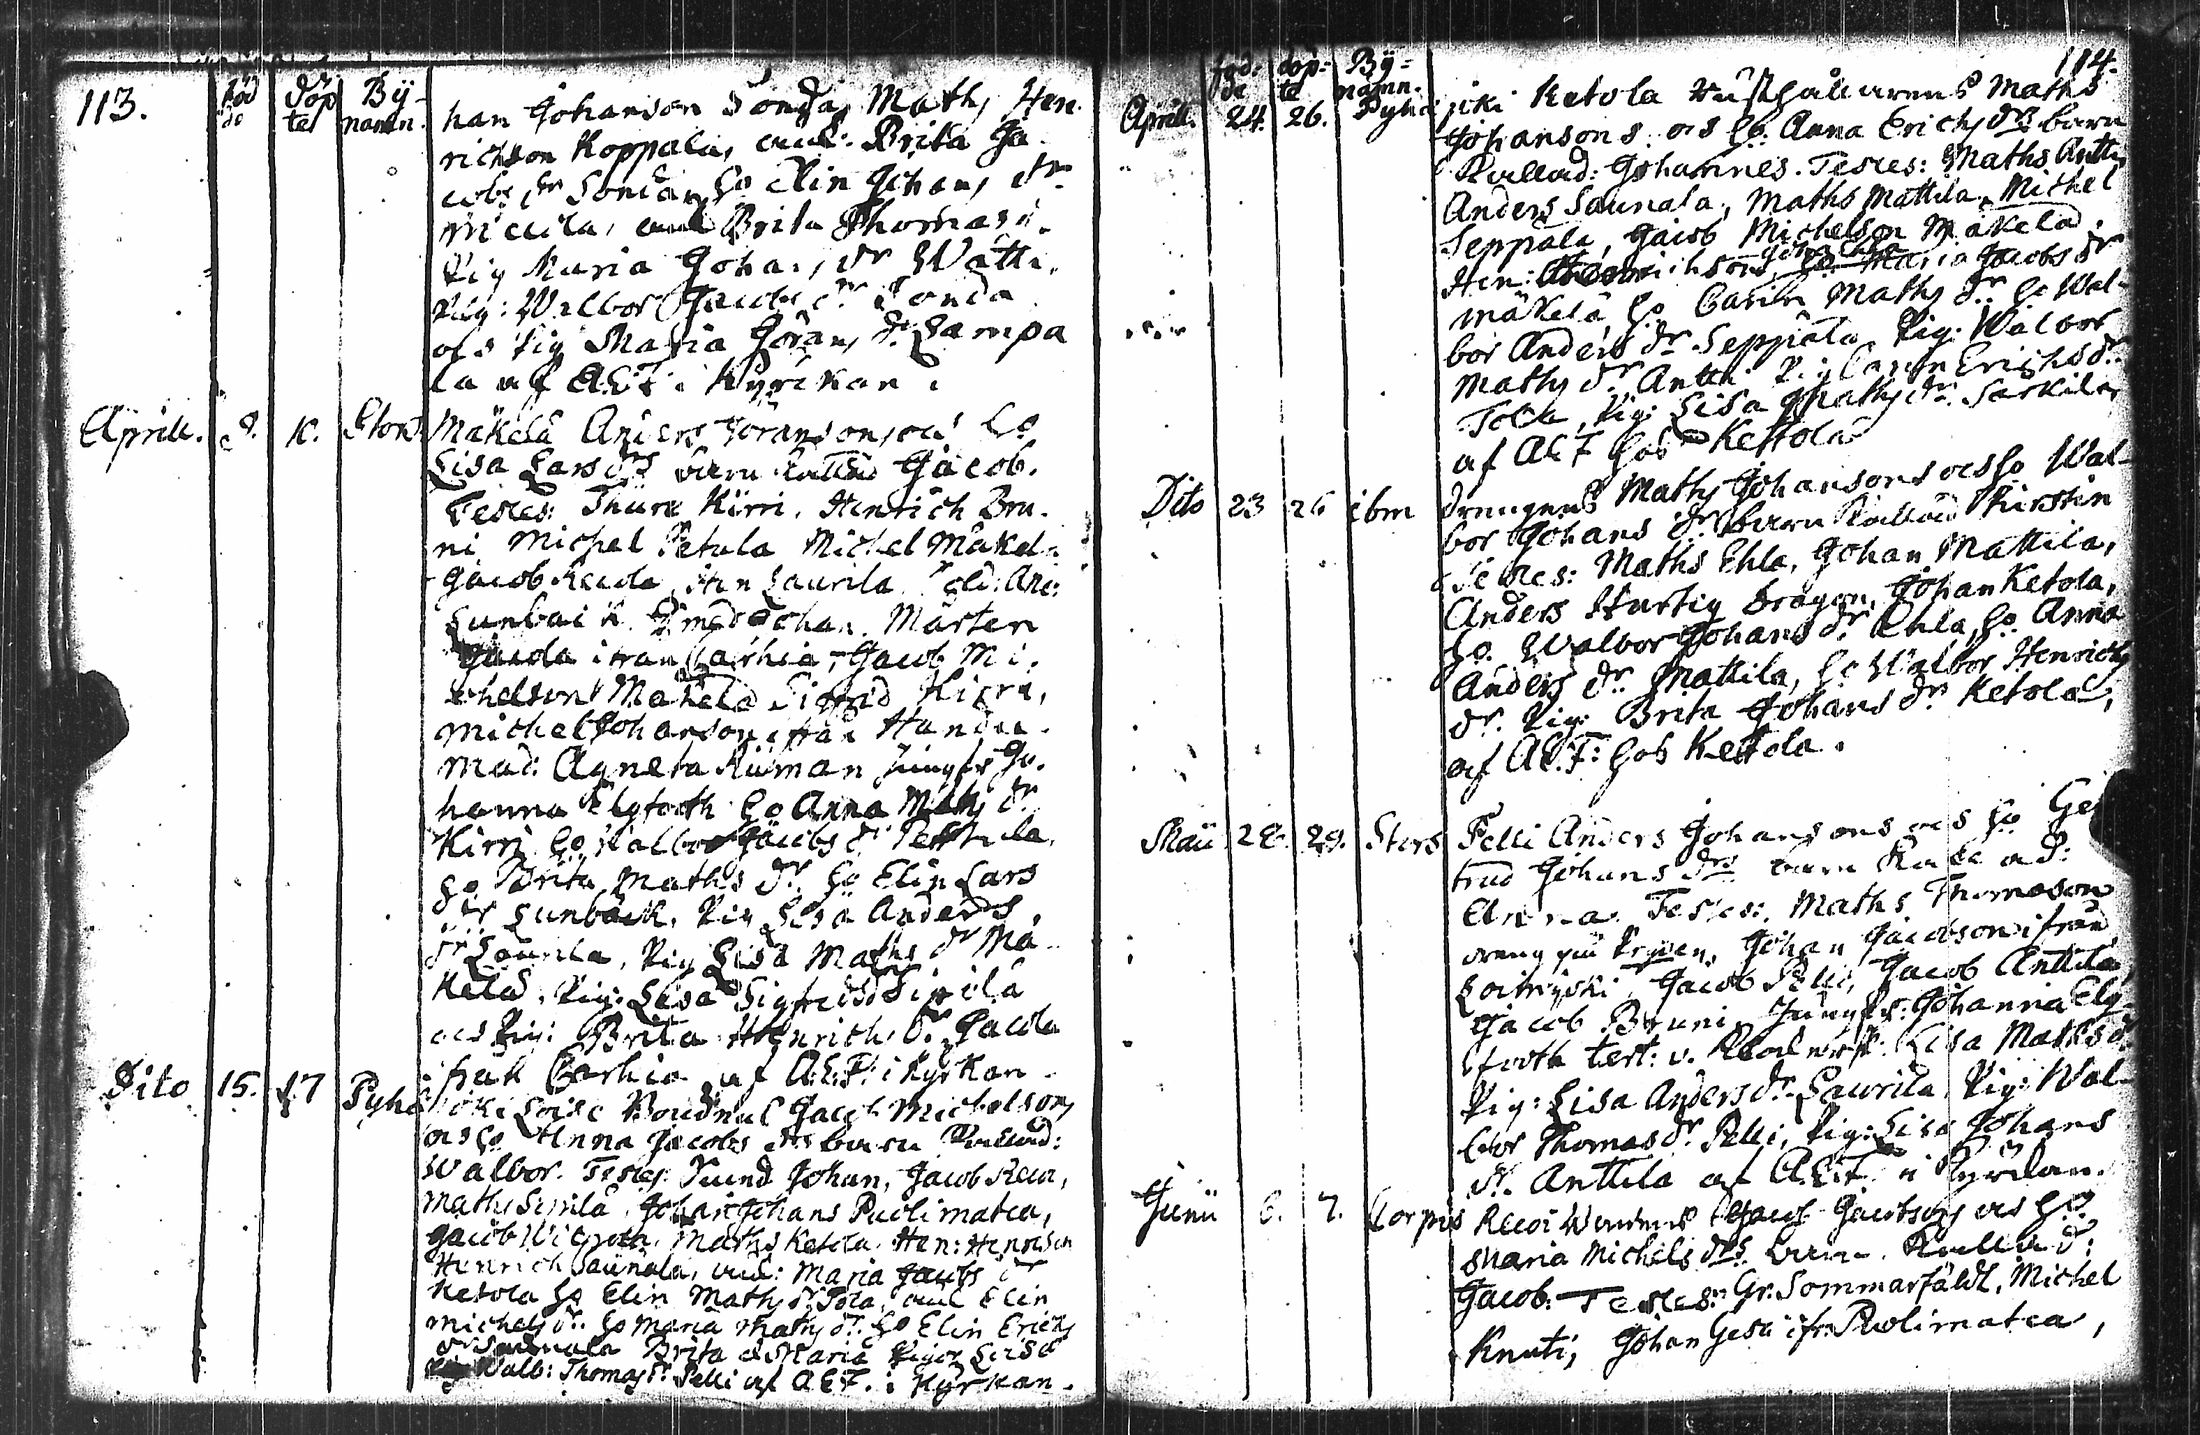 113.
föd de
döp tes
By- namn.
han Johanson Sonda, Maths Hen-
richson Koppala, enk: Brita Ja-
cobs dr Sonda, ho Elin Johans dr
Miccila, enk Brita Thomas d.
Pig Maria Johans dr Watti.
Pig: Walbor Jacobs dr Sonda
ocs Pig Maria Jörans dr Lampa
la af AEF i Kyrkan.
Aprill.
Mäkelä Anders Göranson, ocs ho
Lisa Lars drs barn kallad Jacob.
Testes: Thure Kirri, Henrich Bru-
ni Michel Petula Michel Mäkelä
Jacob Hen Laurila
Lunbäck Johan Mårten
ifrån Carhia, Jacob Mi-
chelson Mäkelä Sigfrid Kirri,
Michel Johanson ifrån
Mad: Agneta Kuman Jungfr Jo-
hanna Elgfooth ho Anna Maths dr
Kirri ho Walbor Jacobs dr Pettula,
ho Brita Maths dr ho Elin Lars
dr Lunbäck, Pig Lisa Anders
dr Laurila, Pig Lisa Maths dr Mä-
kelä, Pig: Lisa Sigfreds dr Sipilä
ocs Pig: Brita Henrichs dr
ifrån Carhia af A:E:F: i Kyrkan.
Dito
15.
17
Pyhä
joki Jacob Michelsons
ocs ho Anna Jacobs drs barn kallad:
Walbor. Testes: Johan, Jacob
Maths Simila, Johan Johans Puolimatca,
Jacob Maths Ketola, Hen: Henrichson
Henrich Saunala, enk: Maria Jacobs dr
Ketola ho Elin Maths dr Tola, enk Elin
Michels dr ho Maria Maths dr ho Elin Erichs
dr Saunala Brita ocs Maria Pigor Lisa
Walb: Thomas dr Pelli af AEF. i Kyrkan.
114.
föd- de
döp- te
By- namn.
Aprill.
24.
26.
Pyhä
joki Ketola Rusthållarens Maths
Johansons ocs ho Anna Erichs drs barn
Kallad: Johannes. Testes: Maths Antti,
Anders Saunala, Maths Mattila, Michel
Seppälä, Jacob Michelson Mäkelä
Hen: Maria Jacobs dr
Mäkelä, ho Carin Maths dr ho Wal-
bor Anders dr Seppälä, Pig: Walbor
Maths dr Antti Pig Carin Erichs dr
Tola, Pig: Lisa Maths dr Särkilä,
af AEF hos Kettola
Dito
23
26
ibm
drengens Maths Johansons ocs ho Wal-
bor Johans drs barn kallad Kirstin
Testes: Maths Ehla, Johan Mattila,
Anders Hurtig Dragon, Johan Ketola,
ho. Walbor Johans dr Ehla, ho. Anna
Anders dr Mattila, ho Walbor Henrichs
dr. Pig: Brita Johans dr Ketola,
af AE.F: hos Ketola.
Maii
28.
29.
Stors
Pelli Anders Johansons ocs ho Ger
trud Johans drs barn Kallad:
Anna. Testes: Maths Thomason
dreng på Prysen, Johan Jacobson ifrån
Jacob Pelli, Jacob Anttila,
Jacob Bruni, Jungfr: Johanna Elg-
footh Lisa Maths dr
Pig: Lisa Anders dr Laurila, Pig: Wal-
bor Thomas dr Pelli, Pig: Lisa Johans
dr. Anttila af AEF i Kyrkan.
Junii
6.
7.
Corpis
Jacob Jacobsons ocs ho
Maria Michels drs barn Kallad:
Jacob. Testes: Gr. Sommarfäldt, Michel
Knuti, Johan Gesa ifr. Puolimatca,